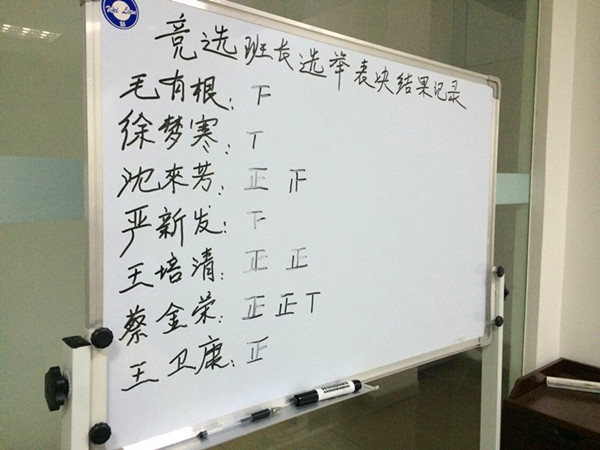 竞选班长选举表决结果记录
毛有根：下
徐梦寒：丅
沈來芳：正 正
严新发：下
王培清：正 正
蔡金荣：正 正 丅
王卫康：正